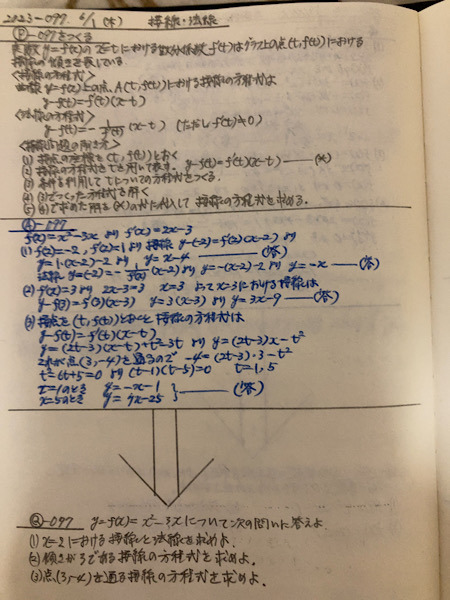 2023-097 6/1 (木) 接線・法線
Ⓟ-097をつくる
関数 y=f(x)の x=tにおける微分係数 f'(t)はグラフ上の点(t, f(t))における
接線の傾きを表している
<接線の方程式>
曲線 y=f(x)上の点、A(t, f(t))における接線の方程式は
y-f(t)=f'(t)(x-t)
<法線の方程式>
y-f(t)=-1/f'(t)(x-t) (ただしf'(t)≠0)
<接線問題の解き方>
(1) 接点の座標を(t, f(t))とおく
(2) 接線の方程式をtを用いて表す。 y-f(t)=f'(t)(x-t) ―(※)
(3) 条件を利用して tについての方程式をつくる。
(4) (3)でつくった方程式を解く
(5) (4)で求めた解を(※)の式に代入して 接線の方程式を求める。
Ⓐ-097
f(x)=x²-3x より f'(x)=2x-3
(1) f(2)=-2, f'(2)=1より接線 y-(-2)=f'(2)(x-2)より
y=1・(x-2)-2 より y=x-4 ―(答)
法線 y-(-2)=-1/f'(2)(x-2)より y=-(x-2)-2 より y=-x―(答)
(2) f'(x)=3より 2x-3=3 x=3 よって x=3における接線は
y-f(3)=f'(3)(x-3) y=3(x-3) より y=3x-9―(答)
(3) 接点を(t, f(t))とおくと 接線の方程式は
y-f(t)=f'(t)(x-t)
y=(2t-3)(x-t)+t²-3t より y=(2t-3)x-t²
これが点(3,-4)を通るので -4=(2t-3)・3-t²
t²-6t+5=0 より (t-1)(t-5)=0 t=1,5
t=1のとき y=-x-1
x=5のとき y=7x-25 } ―(答)
Ⓠ-097 y=f(x)=x²-3xについて次の問いに答えよ
(1) x=2における接線と法線を求めよ。
(2) 傾きが3である接線の方程式を求めよ。
(3) 点(3,-4)を通る接線の方程式を求めよ。